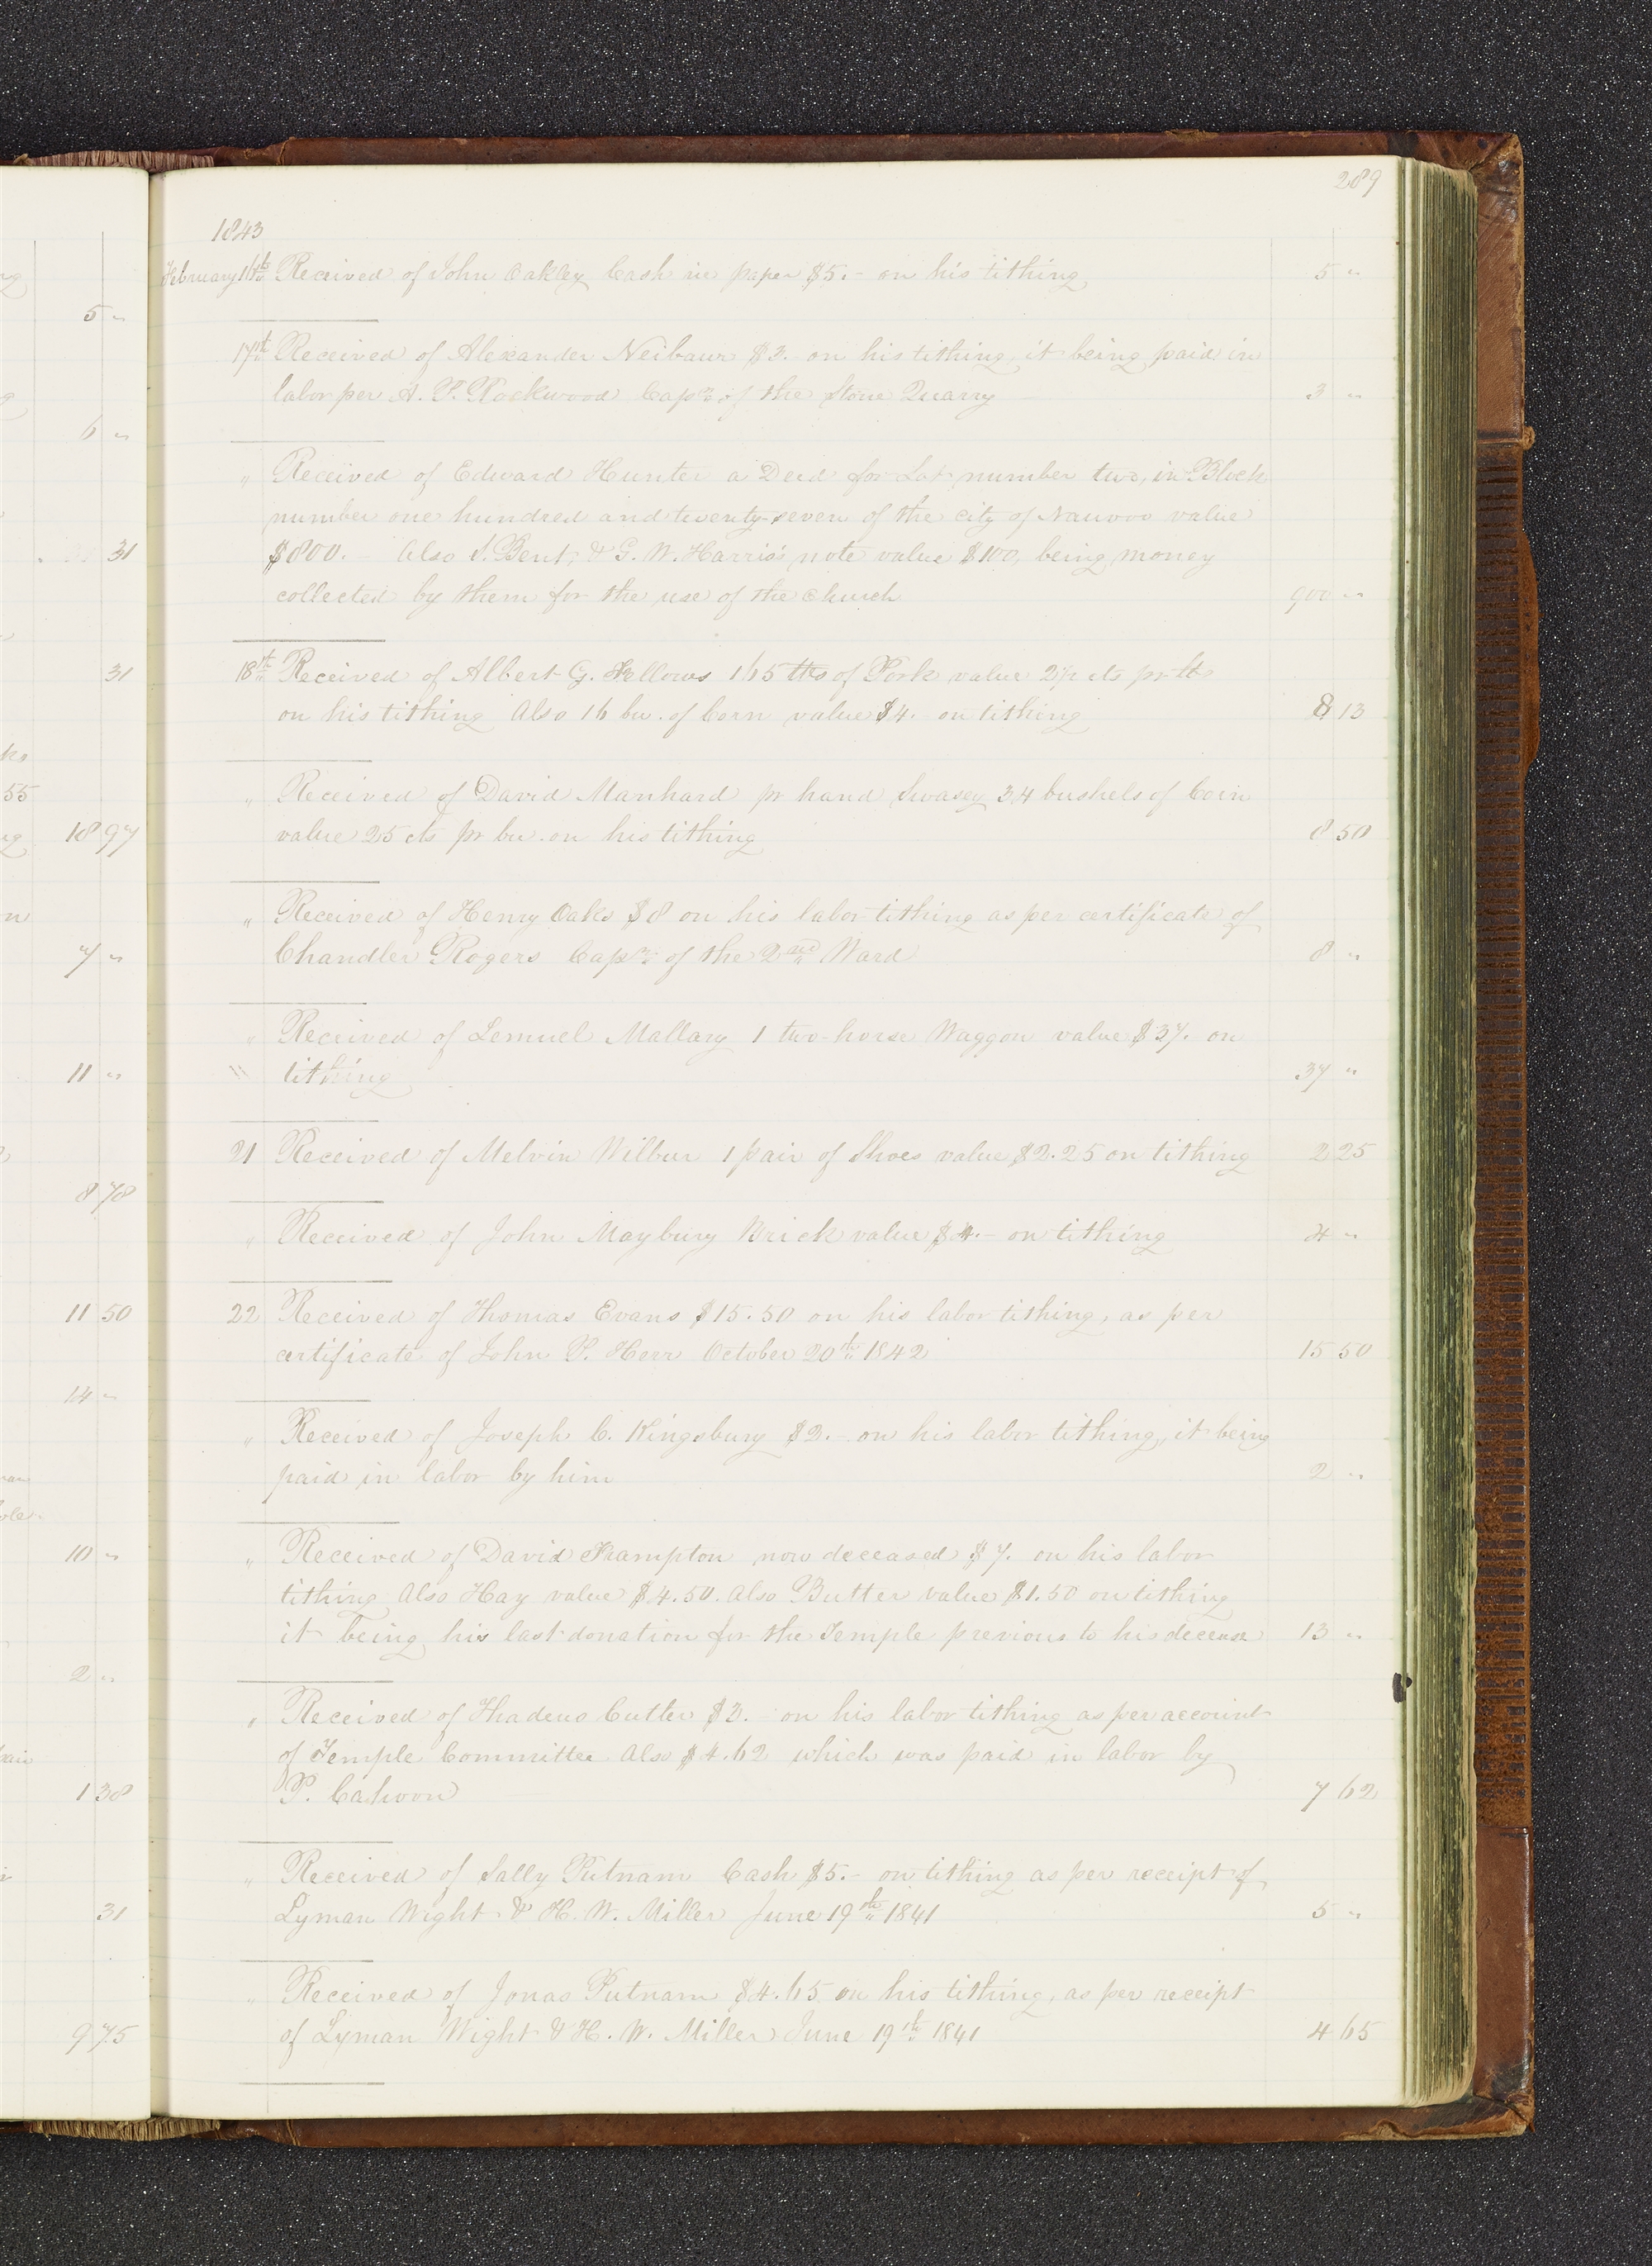 289
1843
February 16th Received of John Oakley Cash in paper $5.- on his tithing 5 "
17th Received of Alexander Neibaur $3. on his tithing, it being paid in
labor per A. P. Rockwood Capn. of the Stone Quarry 3 "
" Received of Edward Hunter a Deed for Lot number two, in Block
number one hundred and twenty-seven of the city of Nauvoo value
$800.- Also S. Bent, & G. W. Harris's note value $100, being money
collected by them for the use of the church 900 "
18th Received of Albert G. Fellows 165 lbs of Pork value 2½ cts pr lb
on his tithing Also 16 bu. of Corn value $4. on tithing 8 13
" Received of David Manhard pr hand Swasey 34 bushels of Corn
value 25 cts pr bu. on his tithing 8 50
" Received of Henry Oaks $8 on his labor tithing as per certificate of
Chandler Rogers Capn. of the 2nd Ward 8 "
" Received of Lemuel Mallary 1 two-horse Waggon value $37. on
" tithing 37 "
21 Received of Melvin Wilbur 1 pair of Shoes value $2.25 on tithing 2 25
" Received of John Maybury Brick value $4.- on tithing 4 "
22 Received of Thomas Evans $15.50 on his labor tithing, as per
certificate of John P. Herr October 20th 1842 15 50
" Received of Joseph C. Kingsbury $2.- on his labor tithing, it being
paid in labor by him 2 "
" Received of David Frampton now deceased $7. on his labor
tithing Also Hay value $4.50. Also Butter value $1.50 on tithing
it being his last donation for the Temple previous to his decease 13 "
" Received of Thadeus Cutler $3.- on his labor tithing as per account
of Temple Committee Also $4.62 which was paid in labor by
P. Cahoon 7 62
" Received of Sally Putnam Cash $5.- on tithing as per receipt of
Lyman Wight & H. W. Miller June 19th 1841 5 "
" Received of Jonas Putnam $4.65 on his tithing, as per receipt
of Lyman Wight & H. W. Miller June 19th 1841 4 65